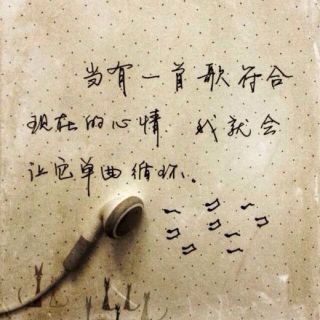 当有一首歌符合
现在的心情,我就会
让它单曲循环.